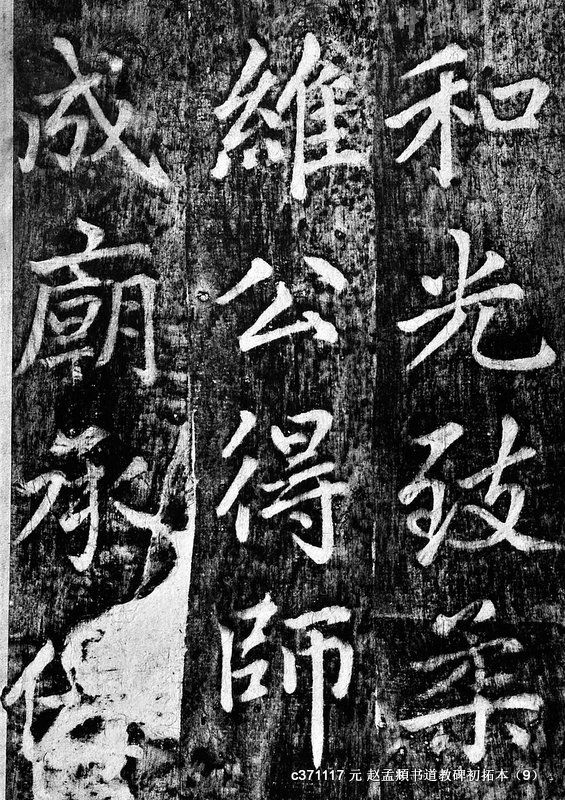 和光致柔
維公得師
成廟承
c371117 元 赵孟頫书道教碑初拓本（9）